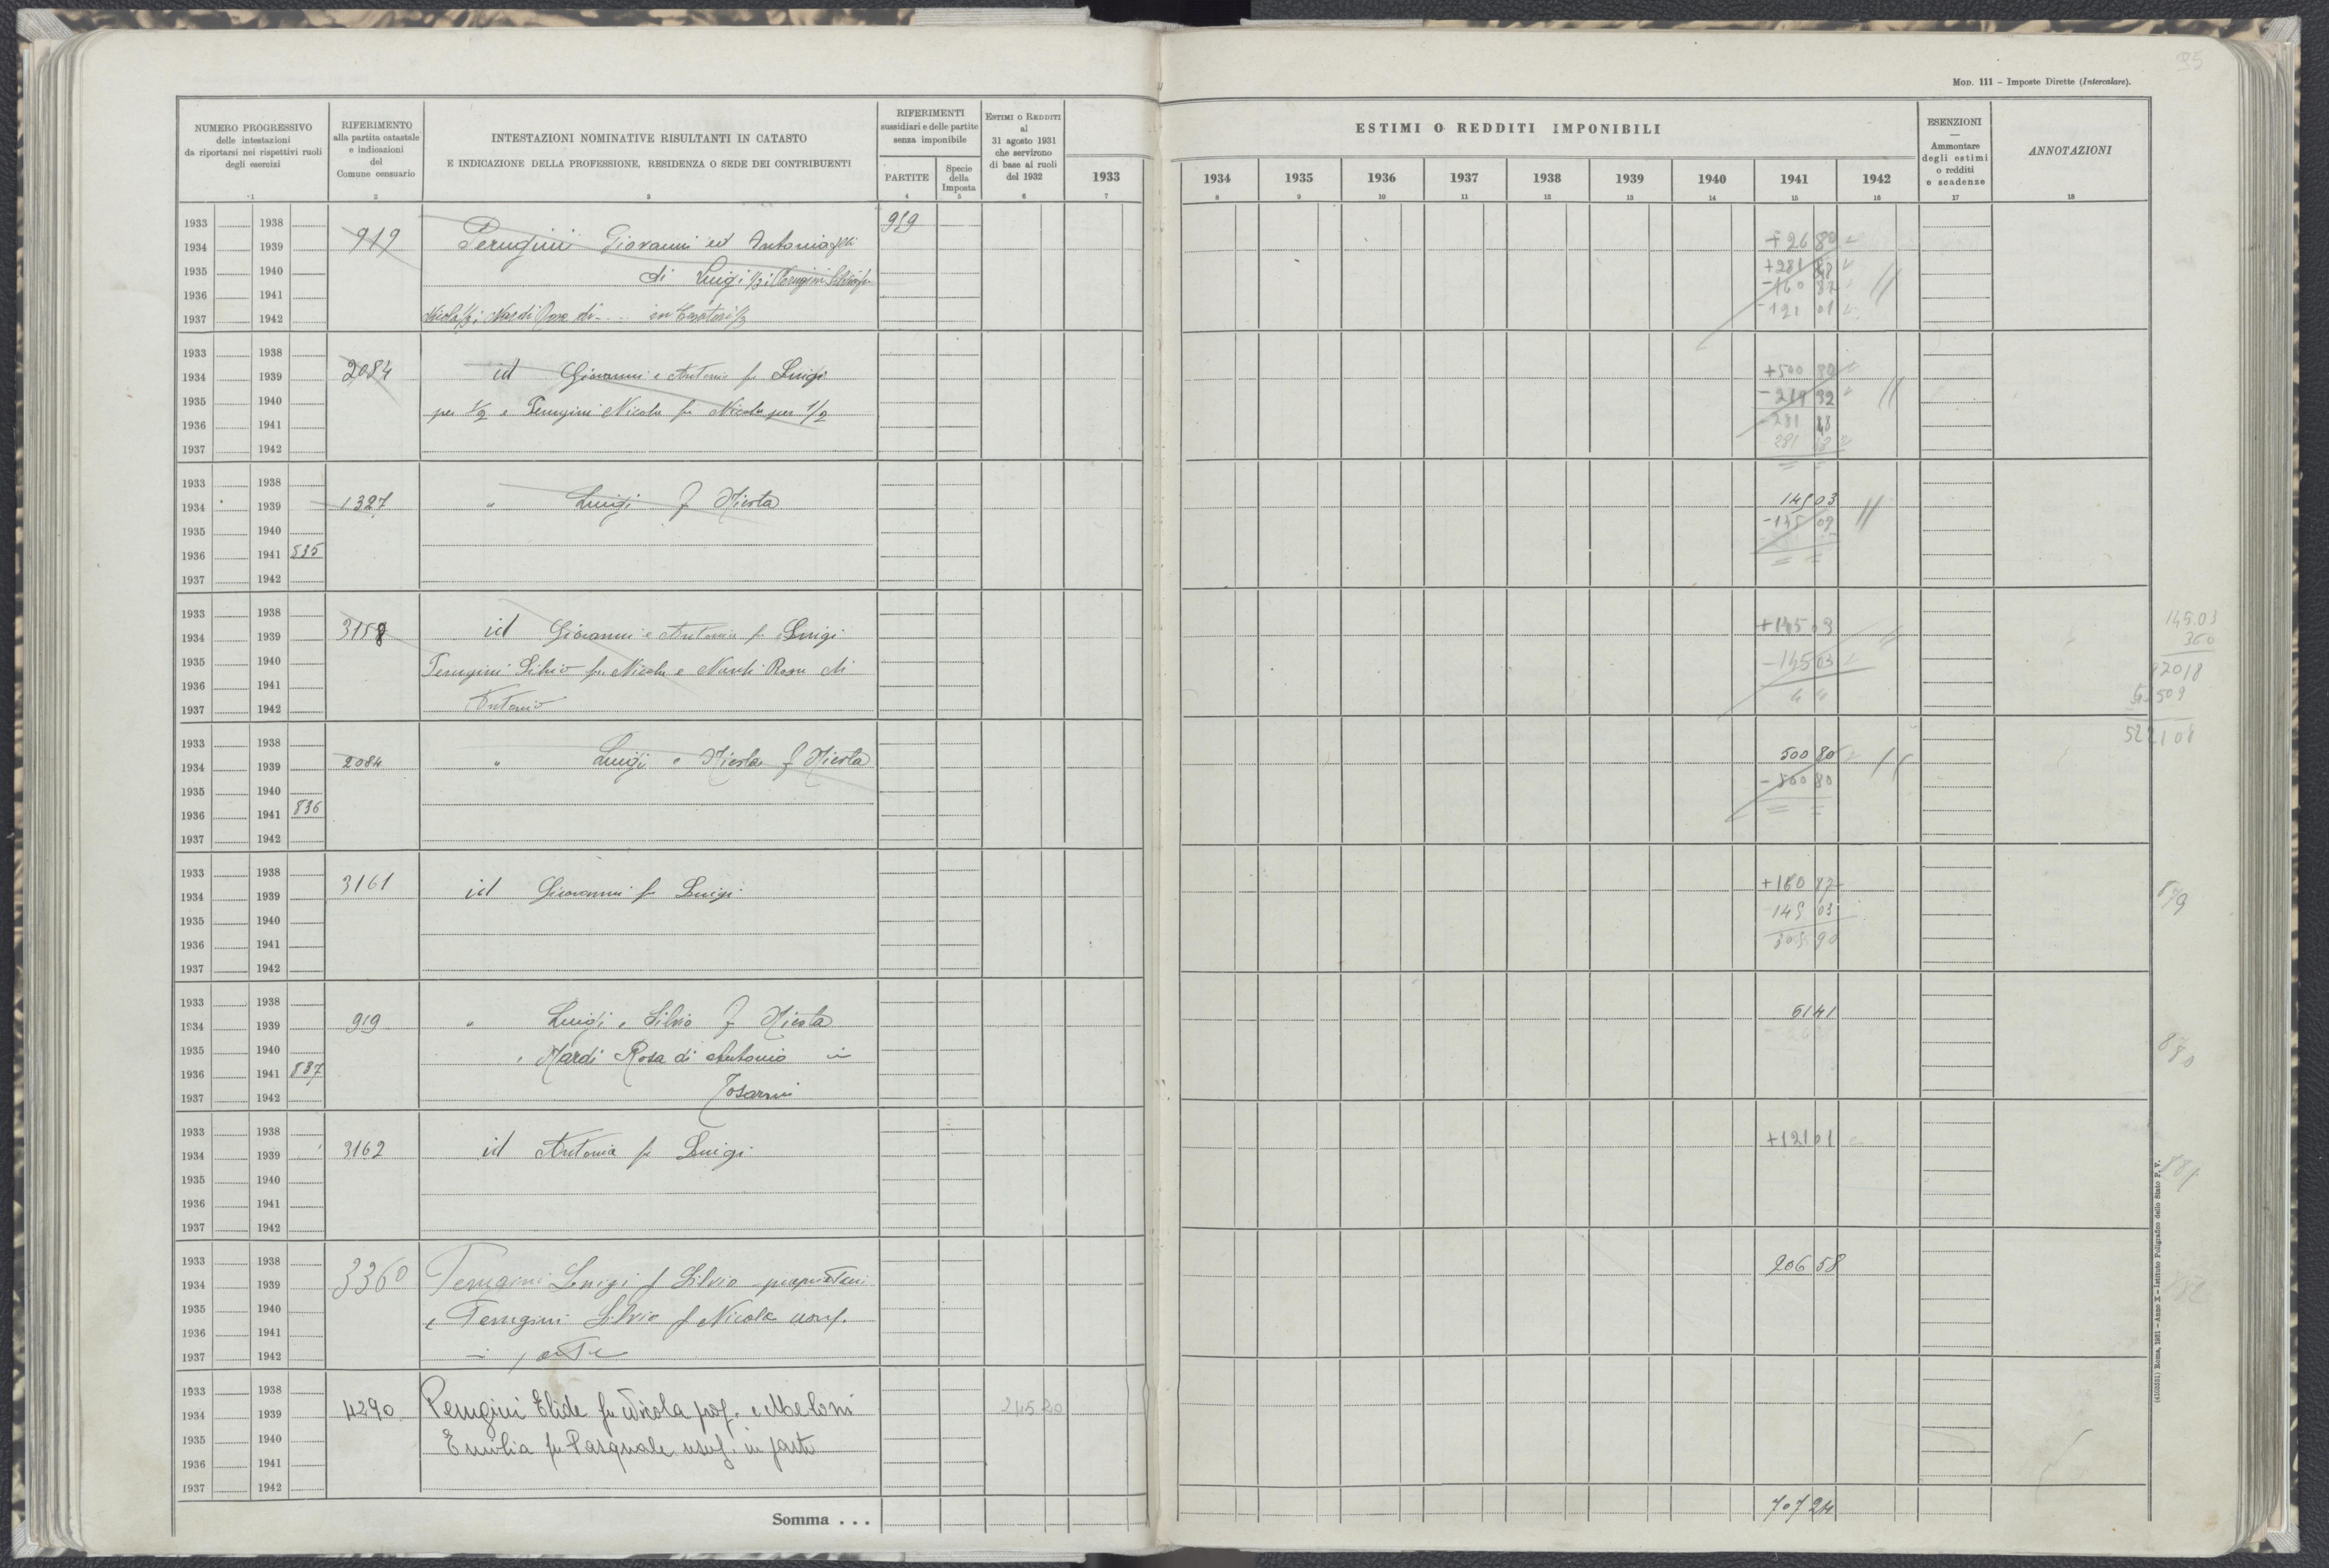 95
Mod. 111 – Imposte Dirette (Intercalare).
NUMERO PROGRESSIVO
delle intestazioni
da riportarsi nei rispettivi ruoli
degli esercizi
RIFERIMENTO
alla partita catastale
e indicazioni
del
Comune censuario
INTESTAZIONI NOMINATIVE RISULTANTI IN CATASTO
E INDICAZIONE DELLA PROFESSIONE, RESIDENZA O SEDE DEI CONTRIBUENTI
RIFERIMENTI
sussidiari e delle partite
senza imponibile
PARTITE
Specie
della
Imposta
Estimi o Redditi
al
31 agosto 1931
che servirono
di base ai ruoli
del 1932
ESTIMI O REDDITI IMPONIBILI
1933 1934 1935 1936 1937 1938 1939 1940 1941 1942
ESENZIONI
—
Ammontare
degli estimi
o redditi
e scadenze
ANNOTAZIONI
1 2 3 4 5 6 7 8 9 10 11 12 13 14 15 16 17 18
1933 1938
1934 1939
1935 1940
1936 1941
1937 1942
919 Perugini Giovanni ed Antonia 959
di Luigi 1/3; Perugini Silvio fu
Nicola 1/3; Nardi Rosa di
+26 80
+281 48
-160 87
-121 01
1933 1938
1934 1939
1935 1940
1936 1941
1937 1942
2084 id Giovanni e Antonia fu Luigi
per 1/2 e Perugini Nicola fu Nicola per 1/2
+500 80
-219 32
281 48
281 48
1933 1938
1934 1939
1935 1940
1936 1941 835
1937 1942
1327 " Luigi f Nicola
145 03
-145 03
1933 1938
1934 1939
1935 1940
1936 1941
1937 1942
3158 id Giovanni e Antonia fu Luigi
Perugini Silvio fu Nicola e Nardi Rosa di
Antonio
+145 03
-145 03
145.03
360
52 2108
1933 1938
1934 1939
1935 1940
1936 1941 836
1937 1942
2084 " Luigi e Nicola f Nicola
500 80
-500 80
1933 1938
1934 1939
1935 1940
1936 1941
1937 1942
3161 id Giovanni fu Luigi
+160 87
145 03
305 90
879
1933 1938
1934 1939
1935 1940
1936 1941 837
1937 1942
919 " Luigi e Silvio f Nicola
e Nardi Rosa di Antonio in
51 41
880
1933 1938
1934 1939
1935 1940
1936 1941
1937 1942
3162 id Antonia fu Luigi
+121 01
881
1933 1938
1934 1939
1935 1940
1936 1941
1937 1942
3360 Perugini Luigi f Silvio proprietario
e Perugini Silvio f Nicola usuf.
in parte
206 58
882
1933 1938
1934 1939
1935 1940
1936 1941
1937 1942
4290 Perugini Elide fu Nicola prop. e Meloni
Emilia fu Pasquale usuf. in parte
245 20
Somma . . .
707 24
(4103501) Roma, 1931 – Anno X – Istituto Poligrafico dello Stato P. V.